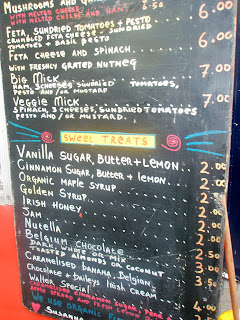 MUSHROOMS AND
WITH MELTED CHEESE. 6.00
WITH MELTED CHEESE AND HAM. 6.50
FETA, SUNDRIED TOMATOES + PESTO 6.00
CRUMBLED FETA CHEESE SUNDRIED
TOMATOES + BASIL PESTO
FETA CHEESE AND SPINACH 6.00
WITH FRESHLY GRATED NUTMEG
BIG MICK 7.00
HAM, 3 CHEESES, SUNDRIED TOMATOES,
PESTO AND/OR MUSTARD
VEGGIE MICK 7.00
SPINACH, 3 CHEESES, SUNDRIED TOMATOES
PESTO AND/OR MUSTARD.
SWEET TREATS
VANILLA SUGAR, BUTTER + LEMON 2.00
CINNAMON SUGAR, BUTTER + LEMON. 2.00
ORGANIC MAPLE SYRUP
GOLDEN SYRUP
IRISH HONEY
JAM
NUTELLA
BELGIUM CHOCOLATE
DARK, WHITE OR MIX
TOASTED ALMONDS OR COCONUT
CARAMELISED BANANA, BELGIAN
CHOCOLATE + BAILEYS IRISH CREAM
WALLER SPECIAL
WE USE ORGANIC
SUSANNA